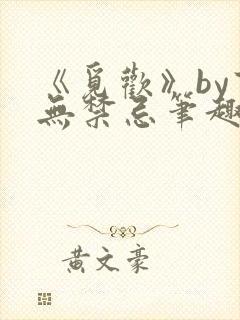 《覓歡》by
無禁忌筆趣
黃文豪